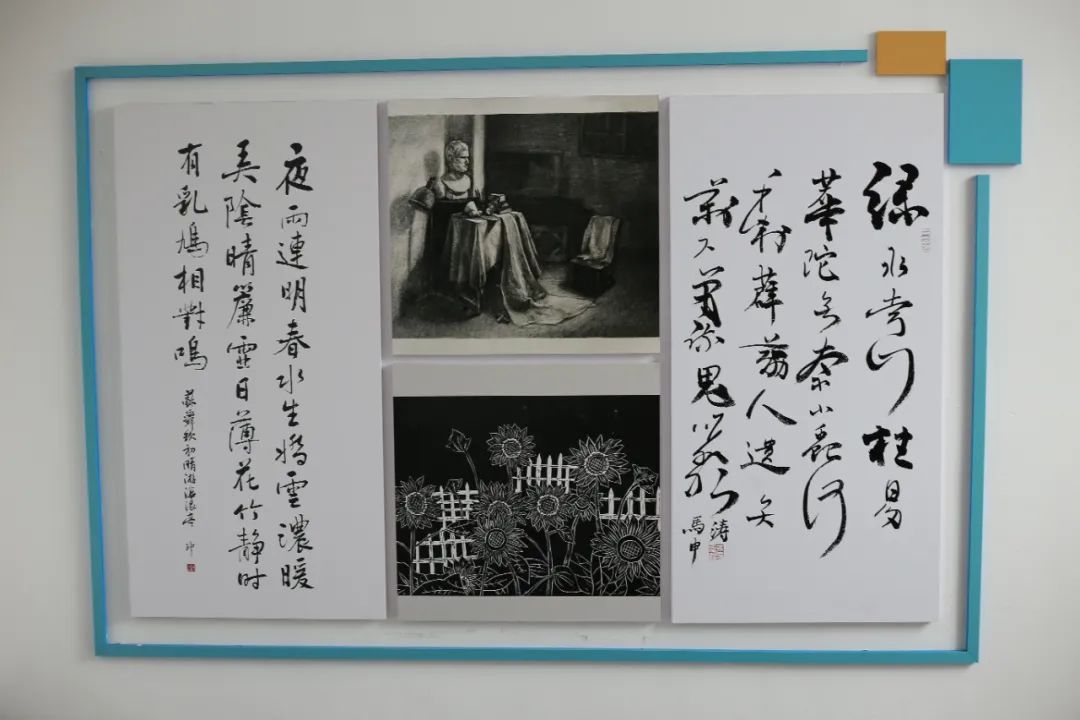 绿水青山枉自多
華陀無奈小蟲何
千村薜荔人遺矢
萬户蕭疏鬼唱歌
涛
馬申
夜雨連明春水生嬌雲濃暖
弄陰晴簾虛日薄花竹静时
有乳鳩相對鳴
蘇舜欽初晴游滄浪亭 申